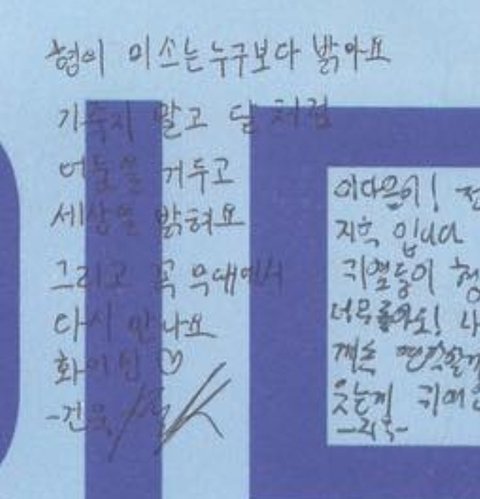 형이 미소는 누구보다 밝아요
기죽지 말고 달 처럼
어둠을 거두고
세상을 밝혀요
그리고 꼭 무대에서
다시 만나요
화이팅 ♡
-건욱
이다을이! 전
지혁 입니다
귀염둥이 형
너무좋아요! 나
계속
웃는게 귀여
-지혁-